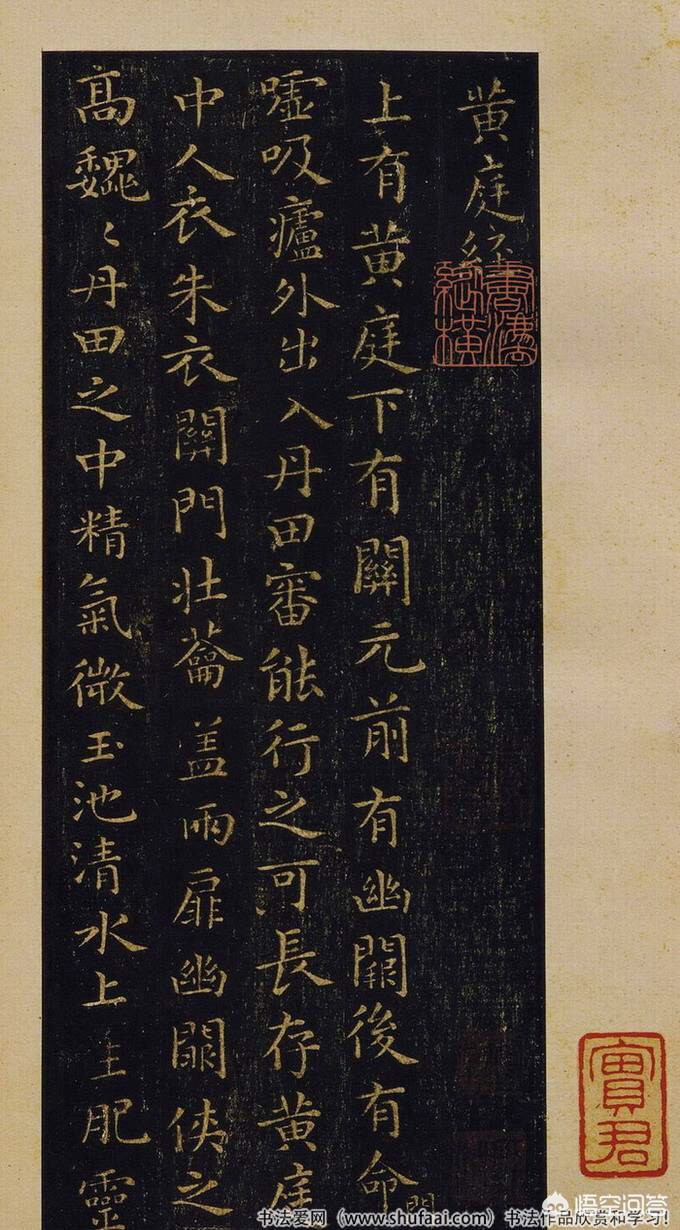 黄庭經
上有黄庭下有關元前有幽闕後有命門
嘘吸廬外出入丹田審能行之可長存黄庭
中人衣朱衣關門壯蘥盖兩扉幽闕侠之
高巍〻丹田之中精氣微玉池清水上生肥靈
實君
书法爱网（www.shufaai.com）书法作品欣赏和学习!
悟空问答